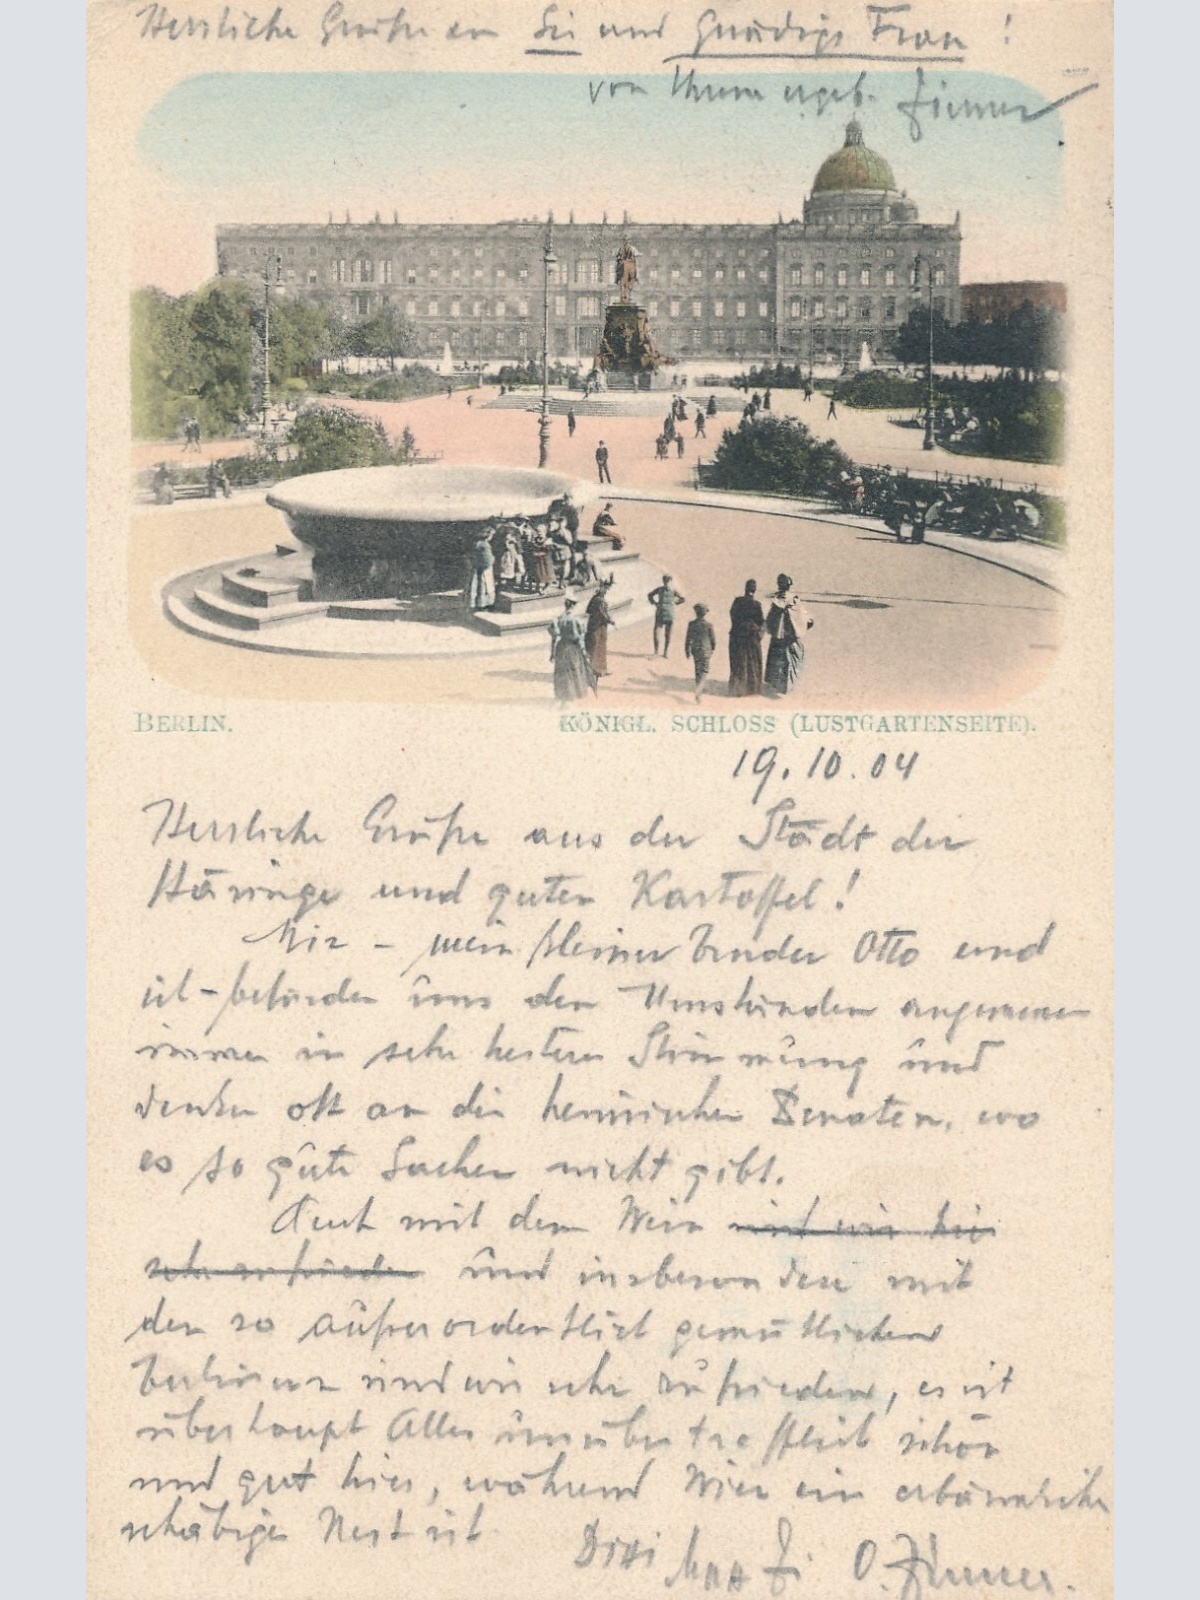 Herzliche Grüße an Sie und Gnädige Frau!
von Ihrem ergeb. Zimmer
BERLIN.
KÖNIGL. SCHLOSS (LUSTGARTENSEITE).
19.10.04
Herzliche Grüße aus der Stadt der
Häringe und guten Kartoffel!
Wir - mein kleiner Bruder Otto und
ich - befinden uns den Umständen angemessen
immer in sehr heiterer Stimmung und
denken oft an die heimischen Penaten, wo
es so gute Sachen nicht gibt.
Auch mit dem Wein sind wir hier
sehr zufrieden und insbesondere mit
den so außerordentlich gemütlichen
Berlinern sind wir sehr zufrieden, es ist
überhaupt Alles unübertrefflich schön
und gut hier, während Wien ein erbärmliches
schäbiges Nest ist.
Dixi O. Zimmer.